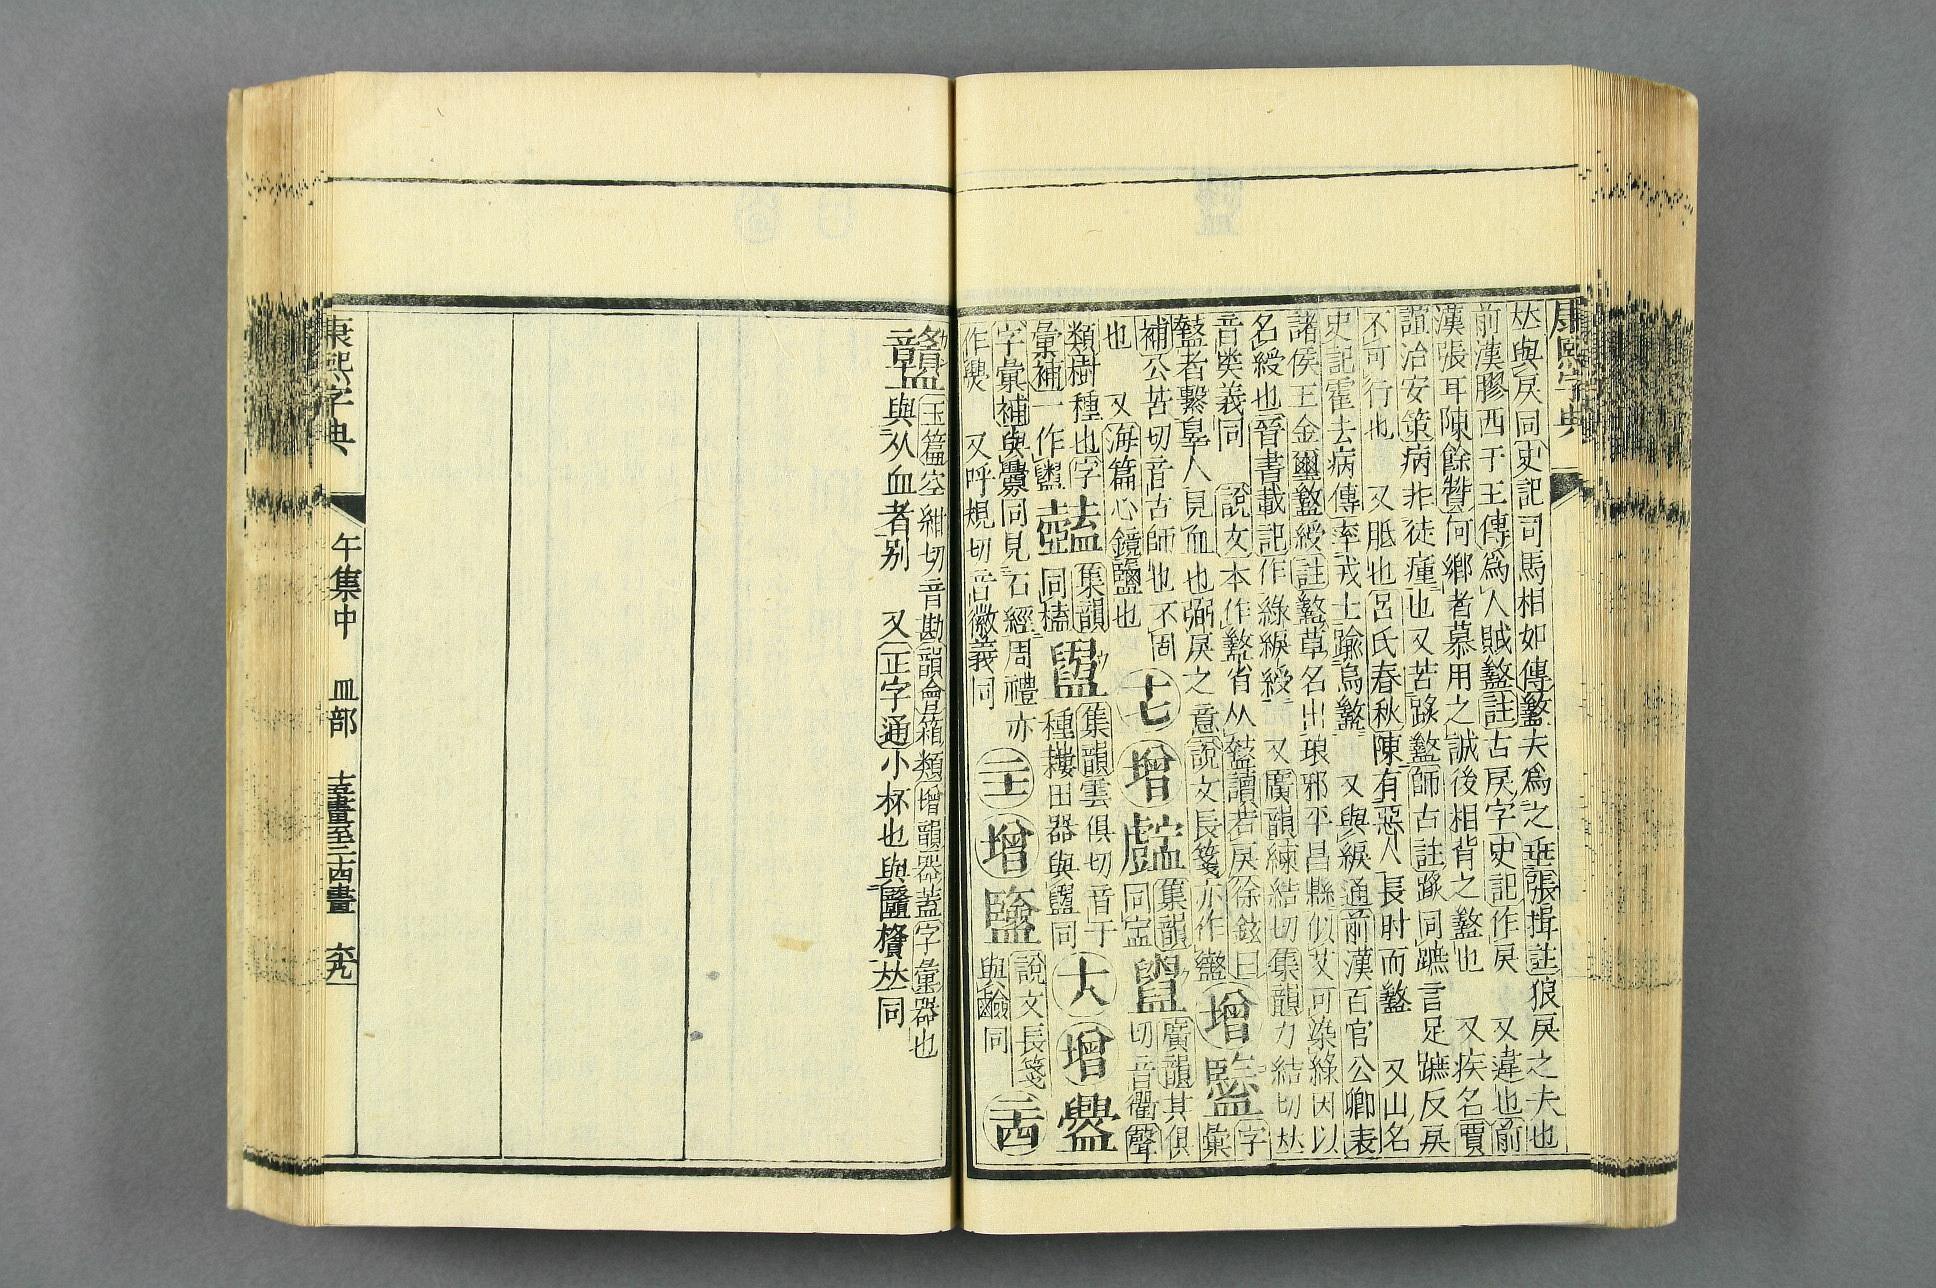 康熙字典
𠀤與戾同史記司馬相如傳盭夫爲之垂張揖註狼戾之夫也
前漢膠西于王傳爲人賊盭註古戾字史記作戾　又違也前
漢張耳陳餘贊何鄉者慕用之誠後相背之盭也　又疾名賈
誼治安策病非徒瘇也又苦蹊盭師古註蹊同蹠言足蹠反戾
不可行也　又胝也呂氏春秋陳有惡人長肘而盭　又山名
史記霍去病傳率戎士踰烏盭　又與綟通前漢百官公卿表
諸侯王金璽盭綬註盭草名出琅邪平昌縣似艾可染綠因以
名綬也晉書載記作綠綟綬　又廣韻練結切集韻力結切𠀤
音㑦義同　說文本作盭省从盩讀若戾徐鉉曰
盩者繫辠人見血也弼戾之意說文長箋亦作盭
增
字彙
補公苦切音古師也不固
也　又海篇心鏡鹽也
七
增
集韻
同寍
廣韻其俱
切音衢聲
類樹種也字
彙補一作
集韻
同榼
集韻雲俱切音于
種耬田器與同
大
增
釁
字彙補與釁同見石經周禮亦
作㸑　又呼規切音徽義同
主
增
說文長箋
與鹼同
酉
玉篇空紺切音勘韻會箱類增韻器蓋字彙器也
與从血者别　又正字通小杯也與𠀤同
康熙字典
午集中　皿部